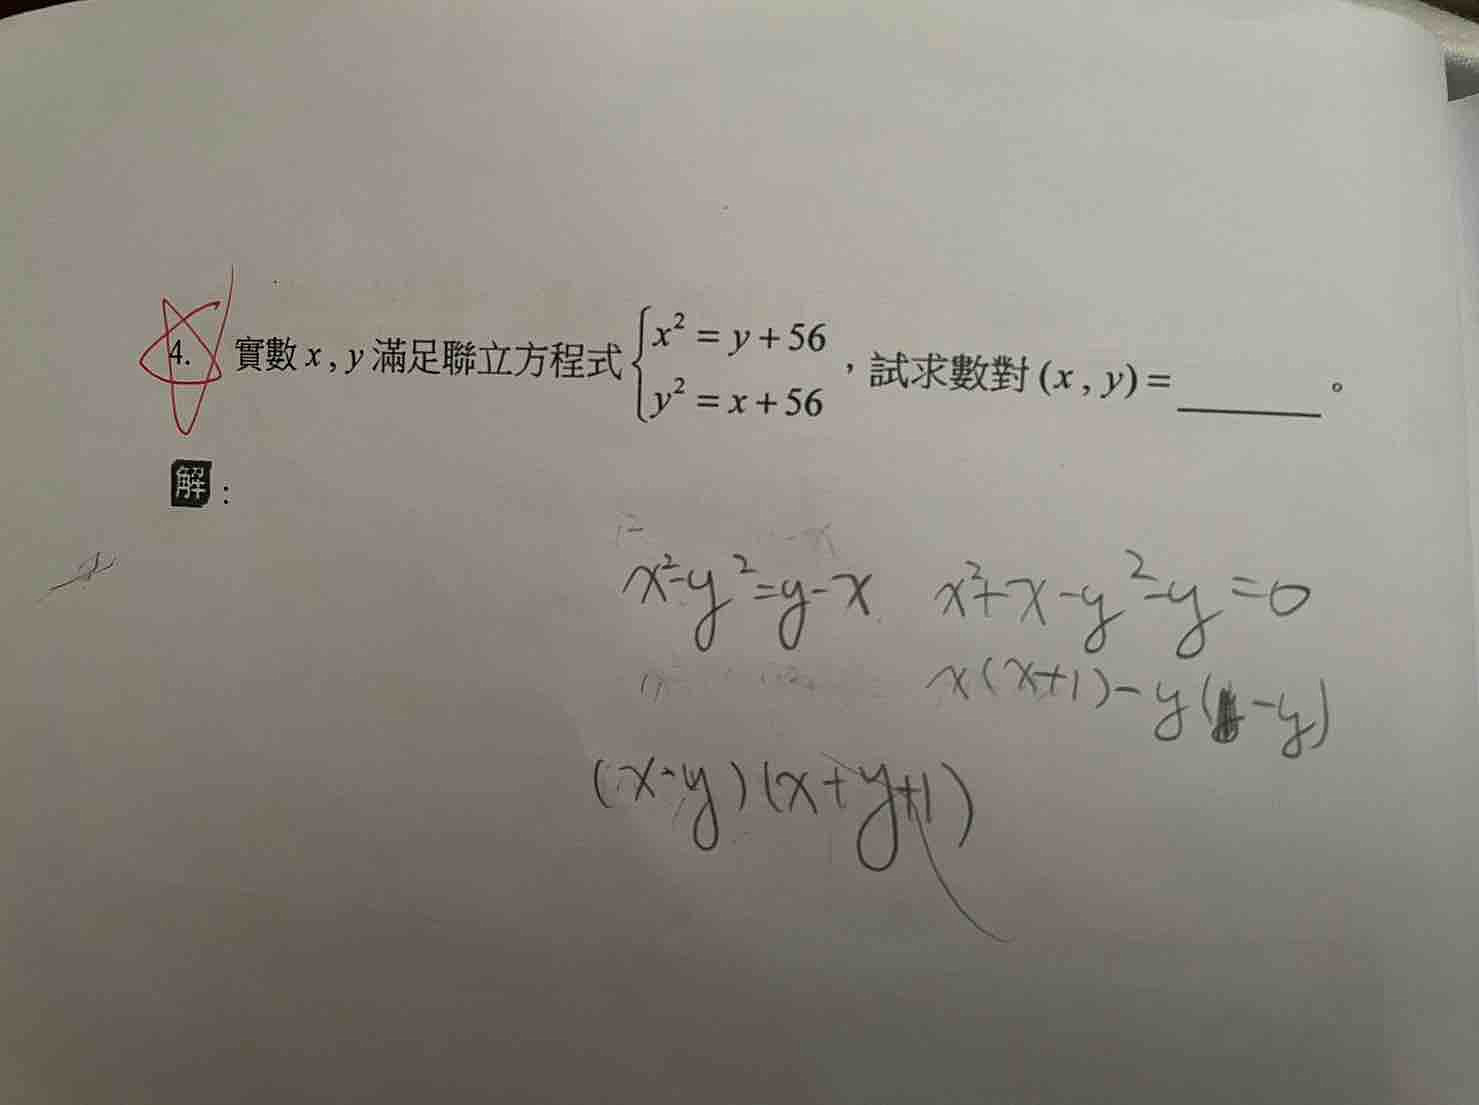 4. 實數 x , y 滿足聯立方程式 { x² = y + 56
y² = x + 56 ，試求數對 (x , y) = ______ 。
解：
x²-y²=y-x x²+x-y²-y=0
x(x+1)-y( -y)
(x-y)(x+y+1)